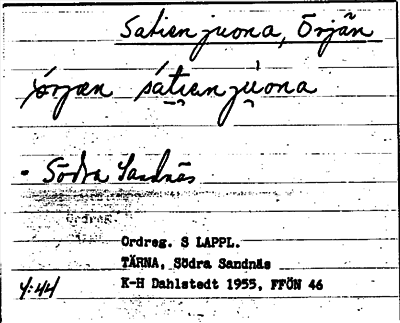 Satien juona, Örjän
örjæn sátien jùona
- Södra Sandnäs
Ordreg.
Ordreg. S LAPPL.
TÄRNA, Södra Sandnäs
4:44 K-H Dahlstedt 1955, FFÖN 46